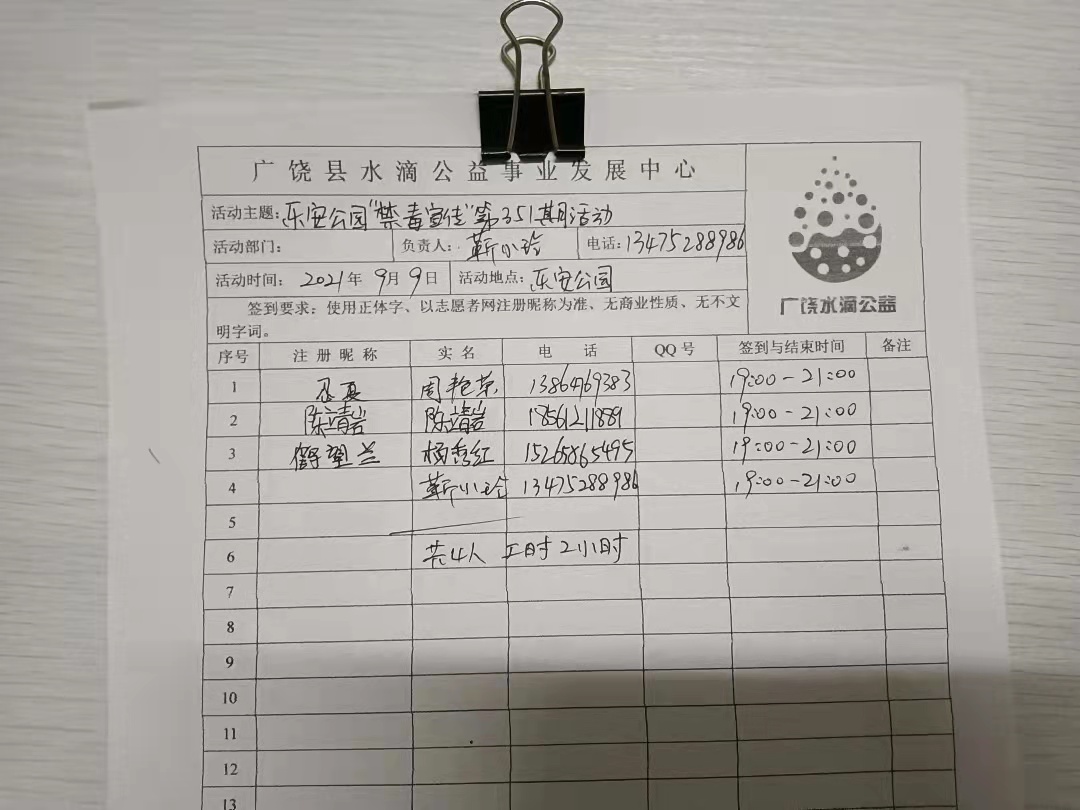 广饶县水滴公益事业发展中心
活动主题：乐安公园"禁毒宣传"第351期活动
活动部门： 负责人：靳小玲 电话：13475288986
活动时间：2021年9月9日 活动地点：乐安公园
签到要求：使用正体字、以志愿者网注册昵称为准、无商业性质、无不文
明字词。
广饶水滴公益
序号 注册昵称 实名 电话 QQ号 签到与结束时间 备注
1 周艳荣 13864769383 19:00-21:00
2 陈靖岩 陈靖岩 18561211889 19:00-21:00
3 鹤望兰 杨秀红 15265865495 19:00-21:00
4 靳小玲 13475288986 19:00-21:00
5
6 共4人 工时2小时
7
8
9
10
11
12
13